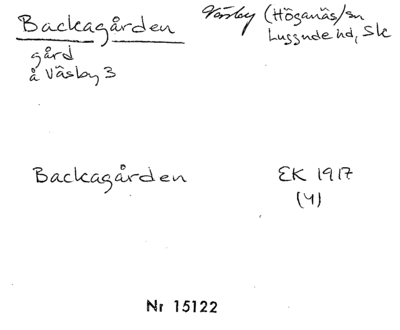 Backagården
Väsby (Höganäs/sn
Luggude hd, Sk
gård
å Väsby 3
Backagården
EK 1917
(4)
Nr 15122